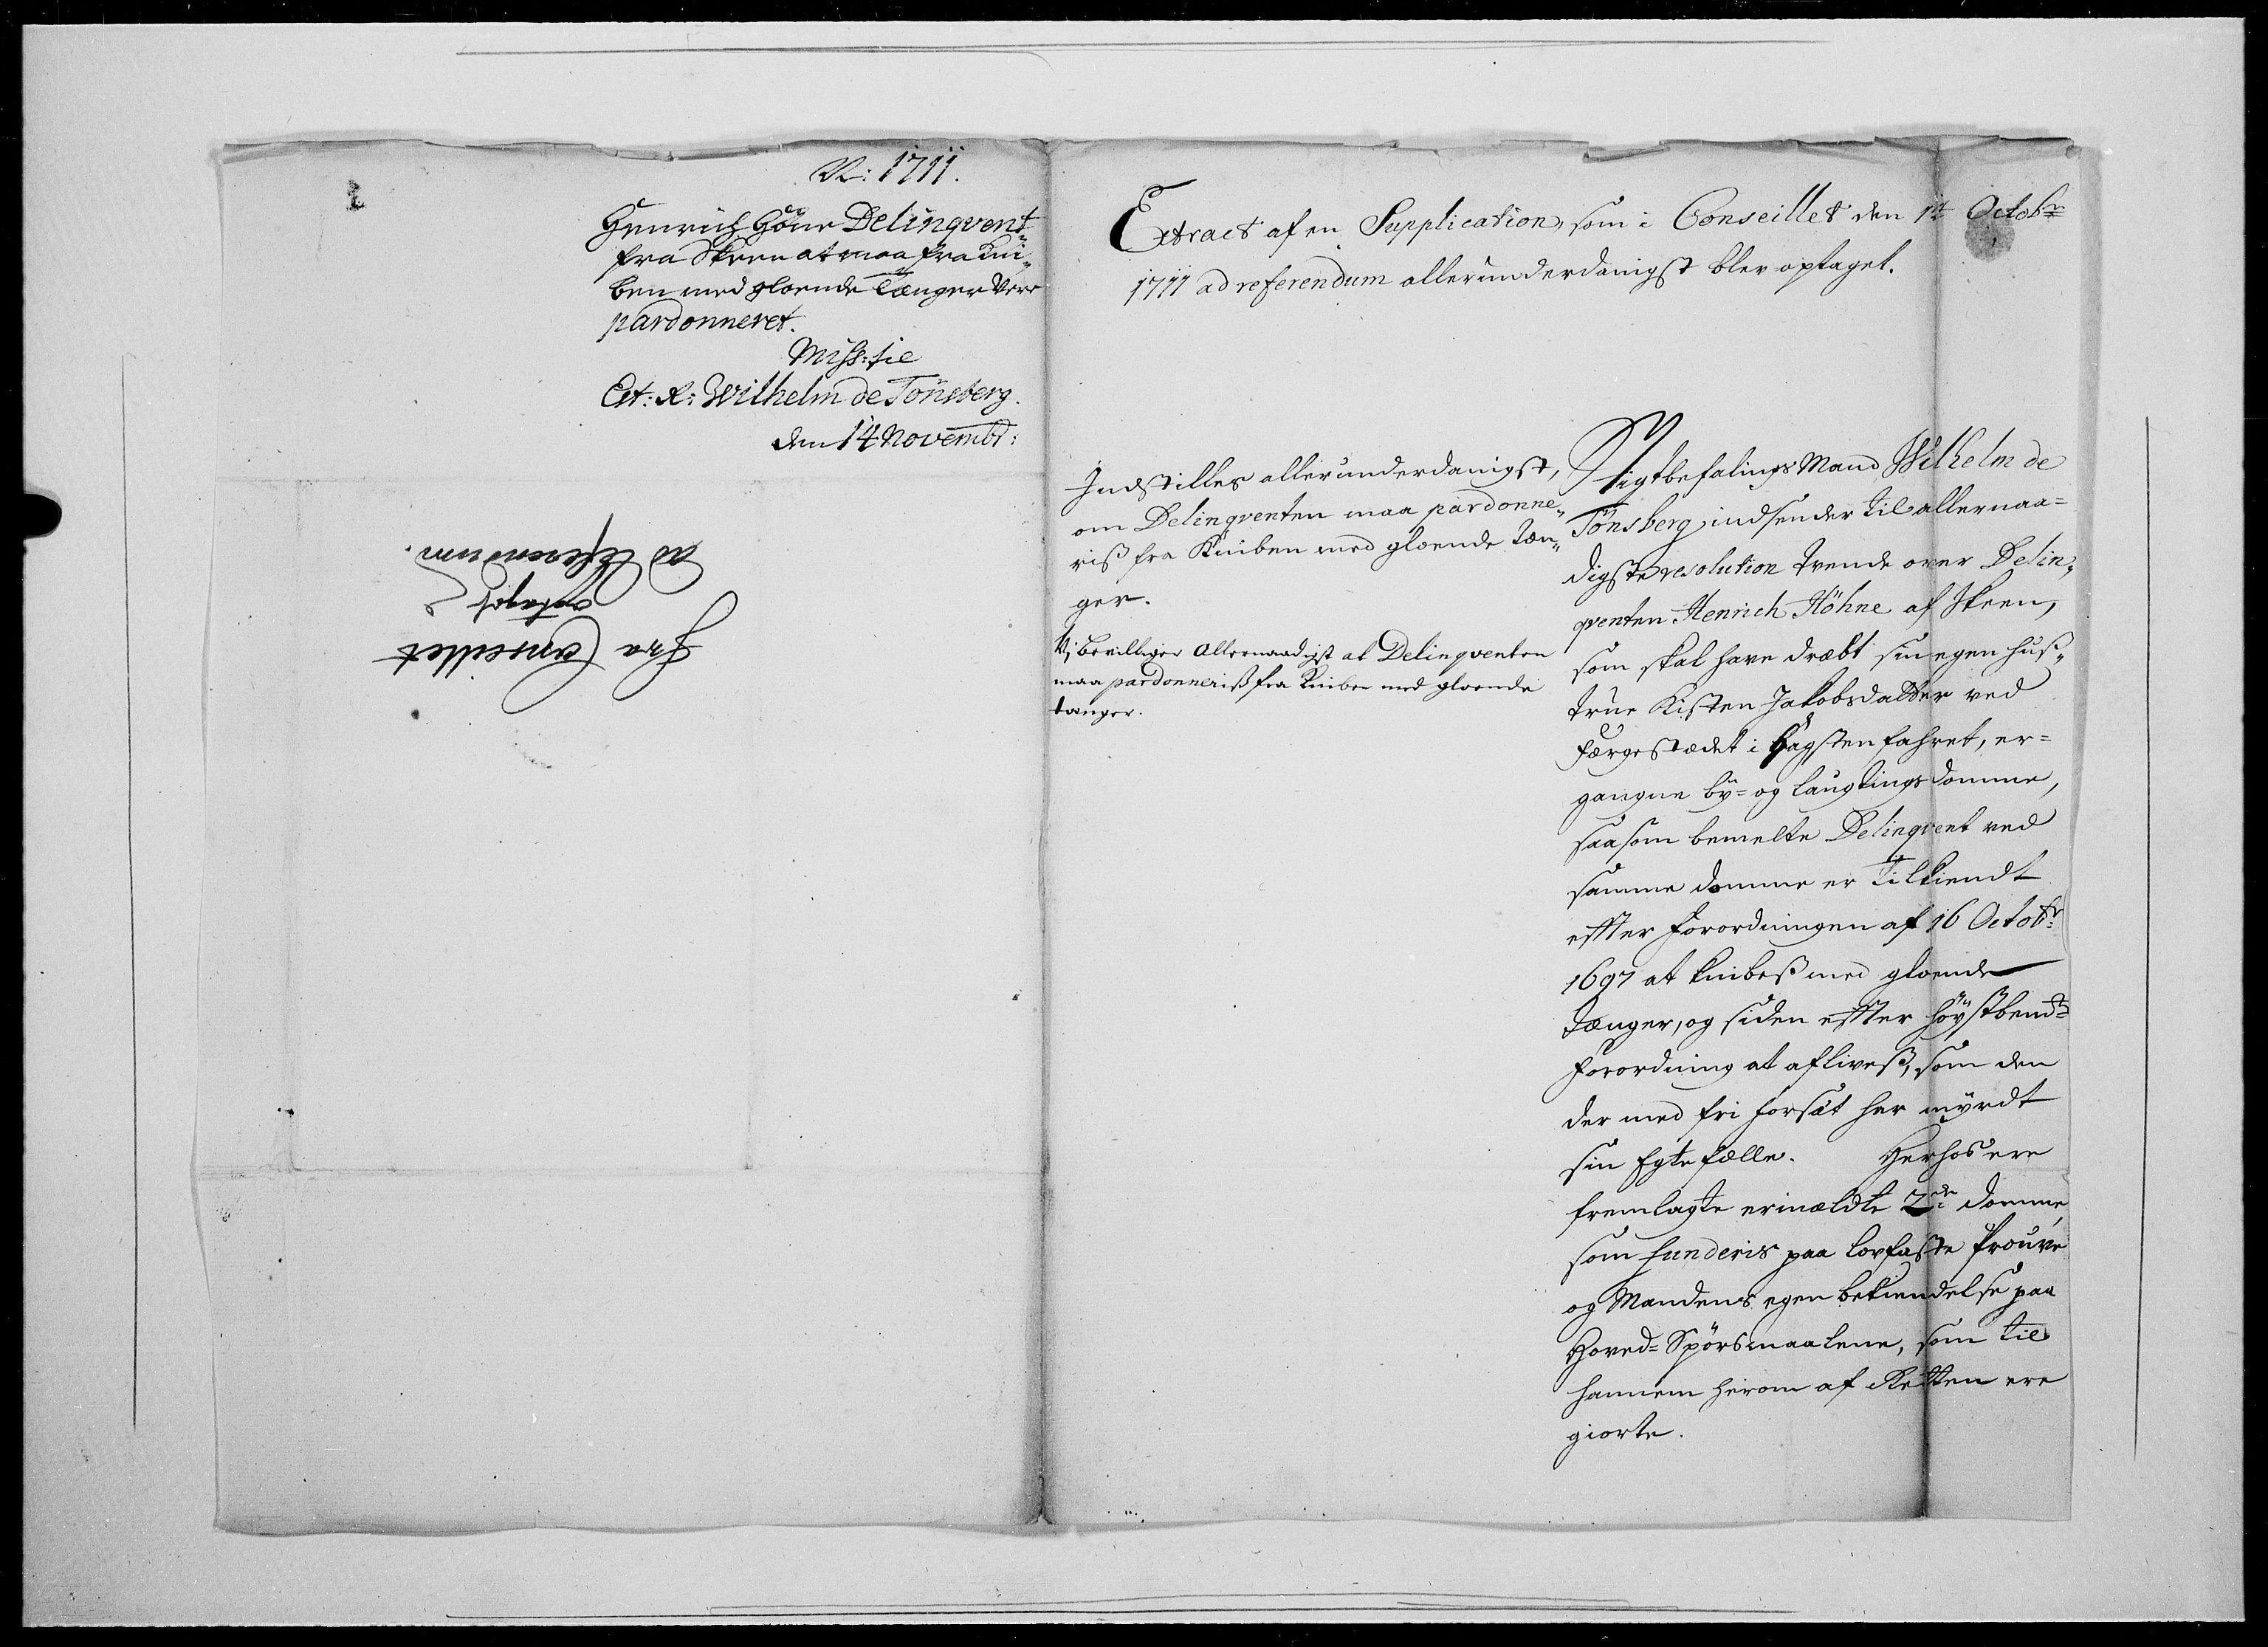 N: 1711.
Henrich Höne Delinqvent
fra Skeen at maa fra Kni„
ben med gloende Tænger vere
pardonneret.
Miss: til
Et: R: Wilhelm de Tönsberg.
den 14 Novembr:
Fra Conseillet
optaget
ad Referendum.
Extract af en Supplication, som i Conseillet den 14 Octobr
1711 ad referendum allerunderdanigst blev optaget.
Indstilles allerunderdanigst,
om Delinqventen maa pardonne„
riß fra Kniben med gloende Tæn„
ger.
Vj bevilliger Allernaadigst at Delinqventen
maa pardonneriß fra Kniben med gloende
tænger.
Stigtbefalings Mand Wilhelm de
Tönsberg indsender til allernaa=
digste resolution tvende over Delin„
qventen Henrich Höhne af Skeen,
som skal have dræbt sin egen huß„
true Kisten Jakobsdatter ved
færgestædet i fahret, er=
gangne bÿ= og laugtings domme,
saasom bemelte Delinqvent ved
samme domme er tilkiendt
effter Forordningen af 16 Octobr:
1697 at knibeß med gloende
Tænger, og siden effter höÿstbemte
Forordning at afliveß, som den
der med fri forsæt har mÿrdt
sin Egtefælle. Herhos ere
fremlagte ermældte 2de domme,
som funderis paa lovfaste Prouve
og Mandens egen bekiendelse paa
Hoved= Spörsmaalene, som til
hannem herom af Retten ere
giorte.